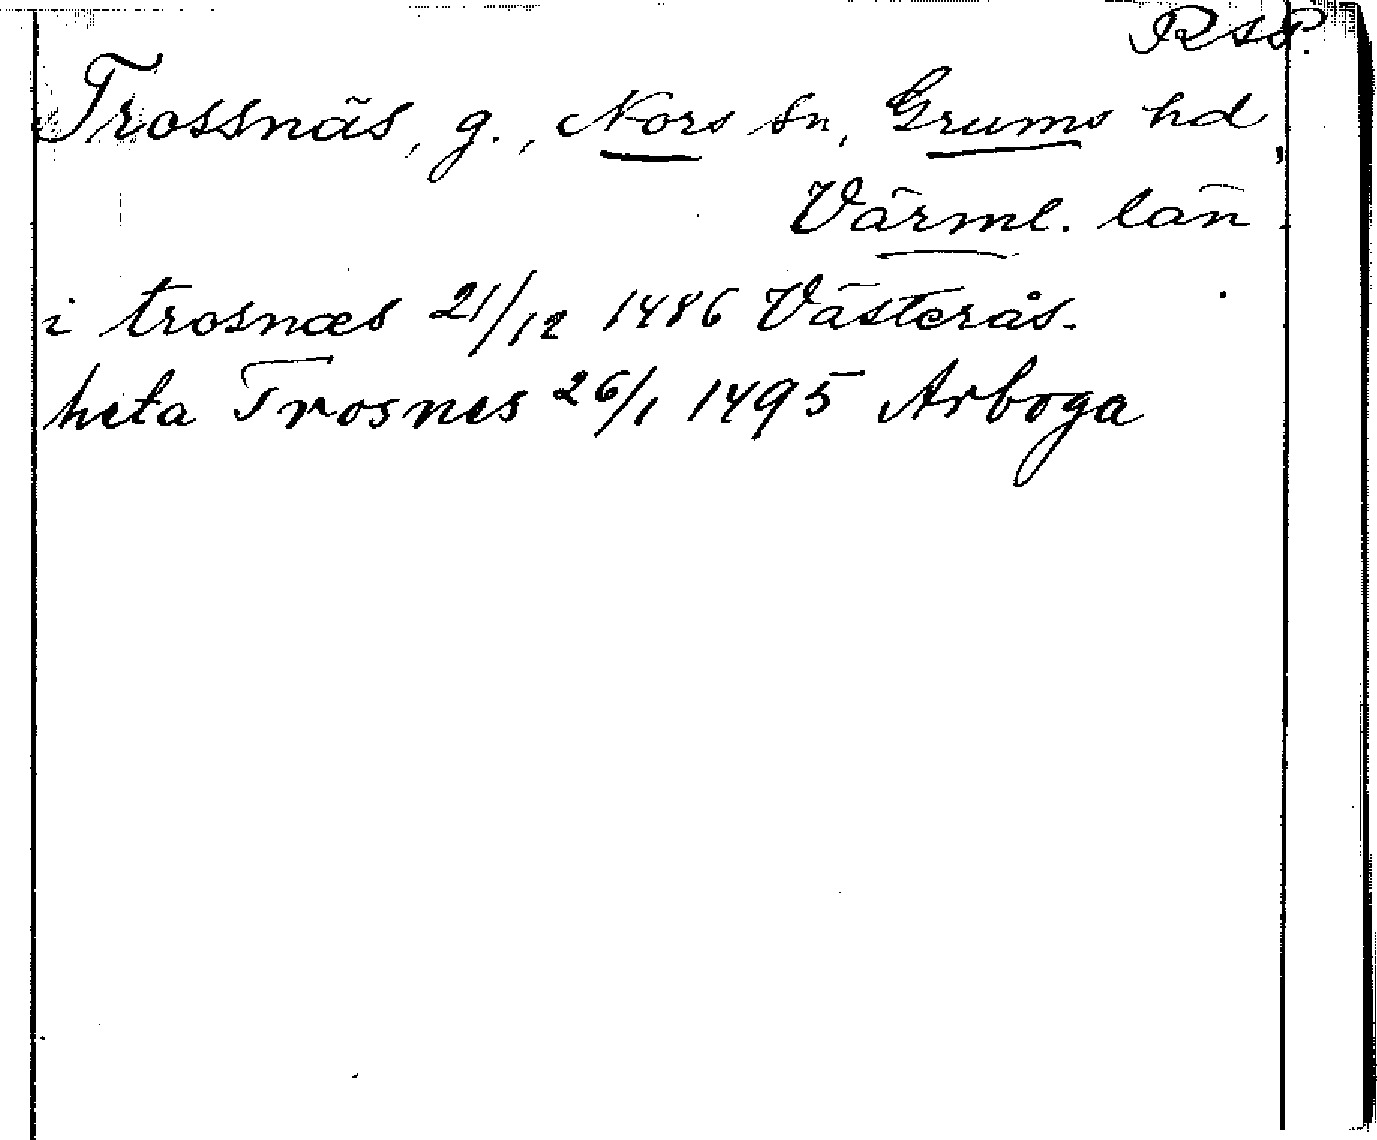 RAP.
Trossnäs, g., Nors sn, Grums hd,
Värml. län
i trosnæs 21/12 1486 Västerås.
heta Trosnes 26/1 1495 Arboga